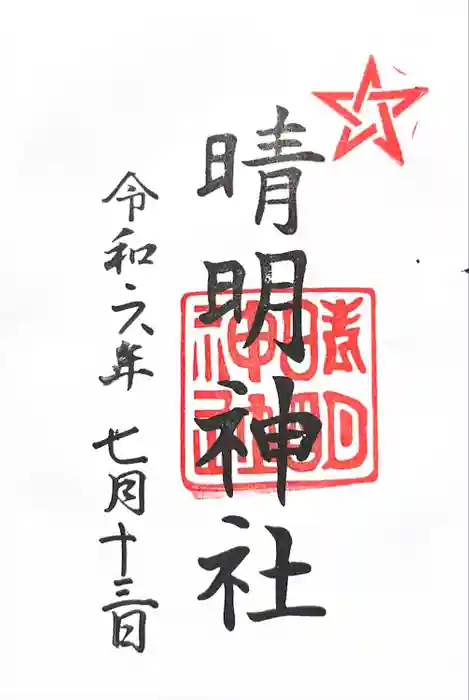 晴明神社
晴明神社
令和六年 七月十三日